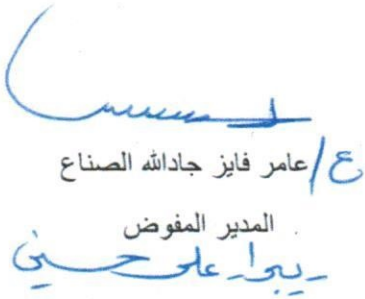 ع/ عامر فايز جادالله الصناع
المدير المفوض
ريبوار علي حسين